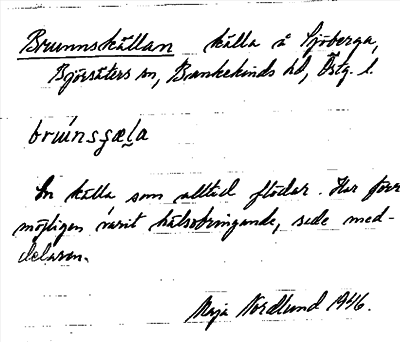 Brunnskällan källa å Sjöberga,
Björsäters sn, Bankekinds hd, Östg. l.
bruńsçæla
En källa som alltid flödar. Har förr
möjligen varit hälsobringande, sade med-
delaren.
Maja Nordlund 1946.